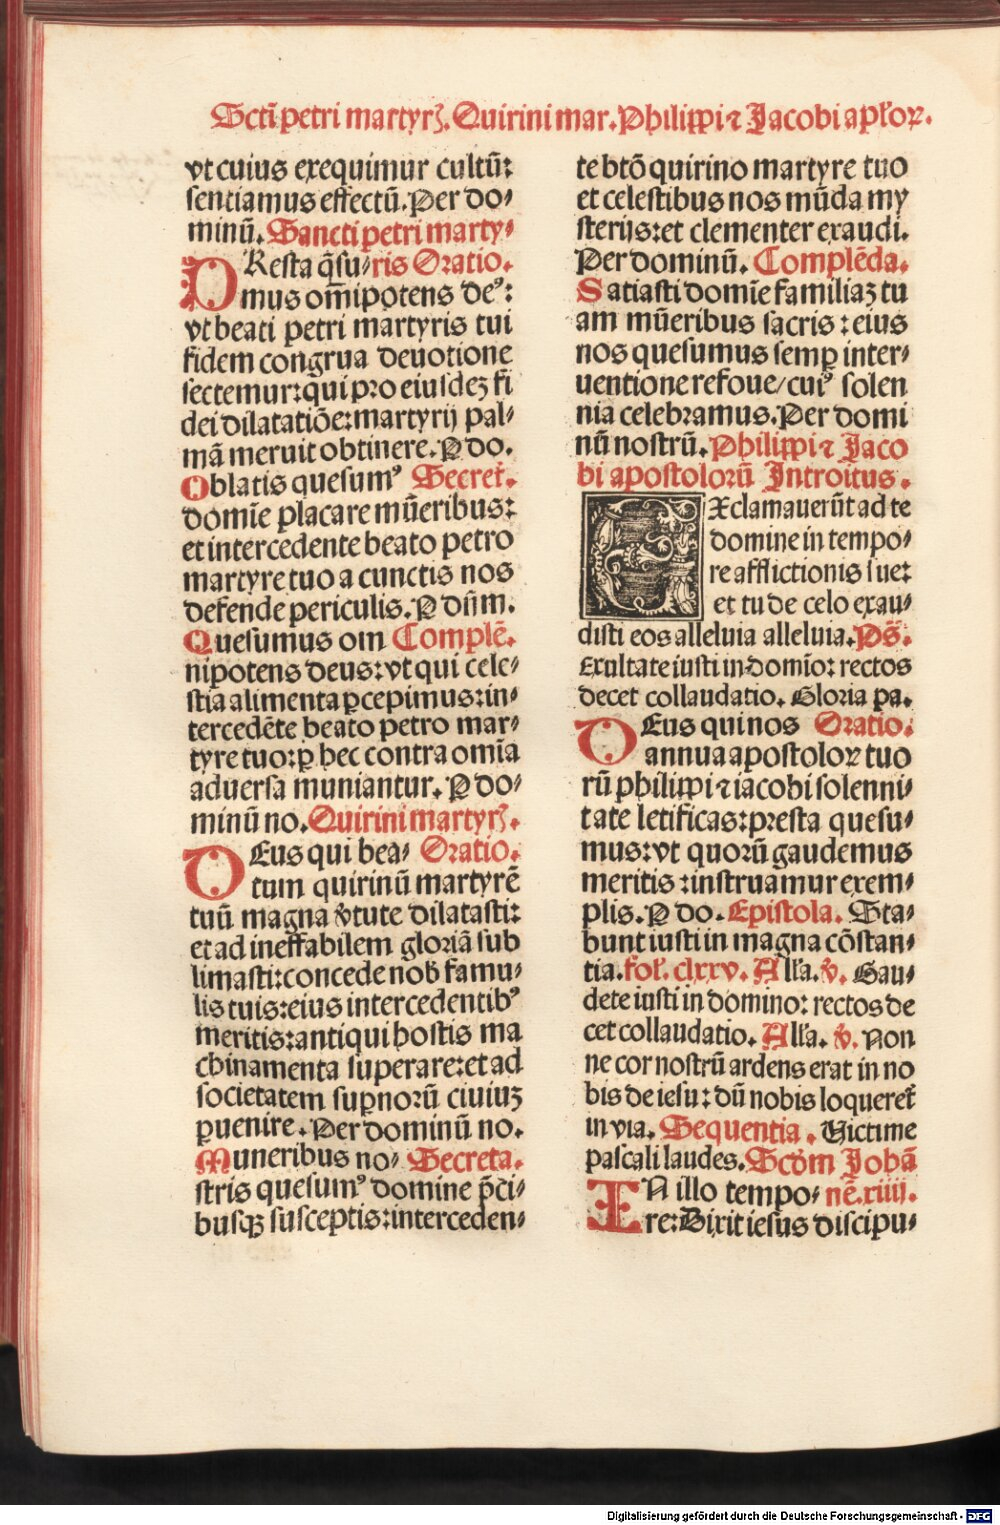 Scti petri martyrꝭ. Quirini mar. Philippi ⁊ Jacobi apl'oꝝ.
vt cuius exequimur cultū:
sentiamus effectū. Per do⸗
minū. Sancti petri marty⸗
PResta q̄su⸗ris Oratio.
mus om̄ipotens deꝰ:
vt beati petri martyris tui
fidem congrua deuotione
sectemur: qui pro eiusdeꝫ fi
dei dilatatiōe: martyrij pal⸗
mā meruit obtinere. P do.
Oblatis quesumꝰ Secret̄.
domīe placare mūeribus:
et intercedente beato petro
martyre tuo a cunctis nos
defende periculis. P dn̄m.
Quesumus om Complē.
nipotens deus: vt qui cele⸗
stia alimenta ꝑcepimus: in⸗
tercedēte beato petro mar⸗
tyre tuo: ꝑ hec contra omīa
aduersa muniantur. P do⸗
minū no. Quirini martyrꝭ.
DEus qui bea⸗ Oratio.
tum quirinū martyrē
tuū magna v̓tute dilatasti:
et ad ineffabilem gloriā sub
limasti: concede nob̓ famu⸗
lis tuis: eius intercedentibꝰ
meritis: antiqui hostis ma
chinamenta superare: et ad
societatem suꝑnorū ciuiuꝫ
ꝑuenire. Per dominū no.
Muneribus no⸗ Secreta.
stris quesumꝰ domine p̄ci⸗
busqꝫ susceptis: interceden⸗
te btō quirino martyre tuo
et celestibus nos mūda my
sterijs: et clementer exaudi.
Per dominū. Complēda.
Satiasti domīe familiaꝫ tu
am mūeribus sacris: eius
nos quesumus semꝑ inter⸗
uentione refoue/ cuiꝰ solen
nia celebramus. Per domi
nū nostrū. Philippi ⁊ Jaco
bi apostolorū Introitus.
EXclamauerūt ad te
domine in tempo⸗
re afflictionis sue:
et tu de celo exau⸗
disti eos alleluia alleluia. Ps̄.
Exultate iusti in domīo: rectos
decet collaudatio. Gloria pa.
DEus qui nos Oratio.
annua apostoloꝝ tuo
rū philippi ⁊ iacobi solenni⸗
tate letificas: presta quesu⸗
mus: vt quorū gaudemus
meritis: instruamur exem⸗
plis. P do. Epistola. Sta⸗
bunt iusti in magna cōstan⸗
tia. fol'. clxxv. All'a. v̓. Gau⸗
dete iusti in domino: rectos de
cet collaudatio. All'a. v̓. Non
ne cor nostrū ardens erat in no
bis de iesu: dū nobis loqueret̄
in via. Sequentia. Victime
pascali laudes. Scd̓m Johā
IN illo tempo⸗ nē. xiiij.
re: Dixit iesus discipu⸗
Digitalisierung gefördert durch die Deutsche Forschungsgemeinschaft - DFG